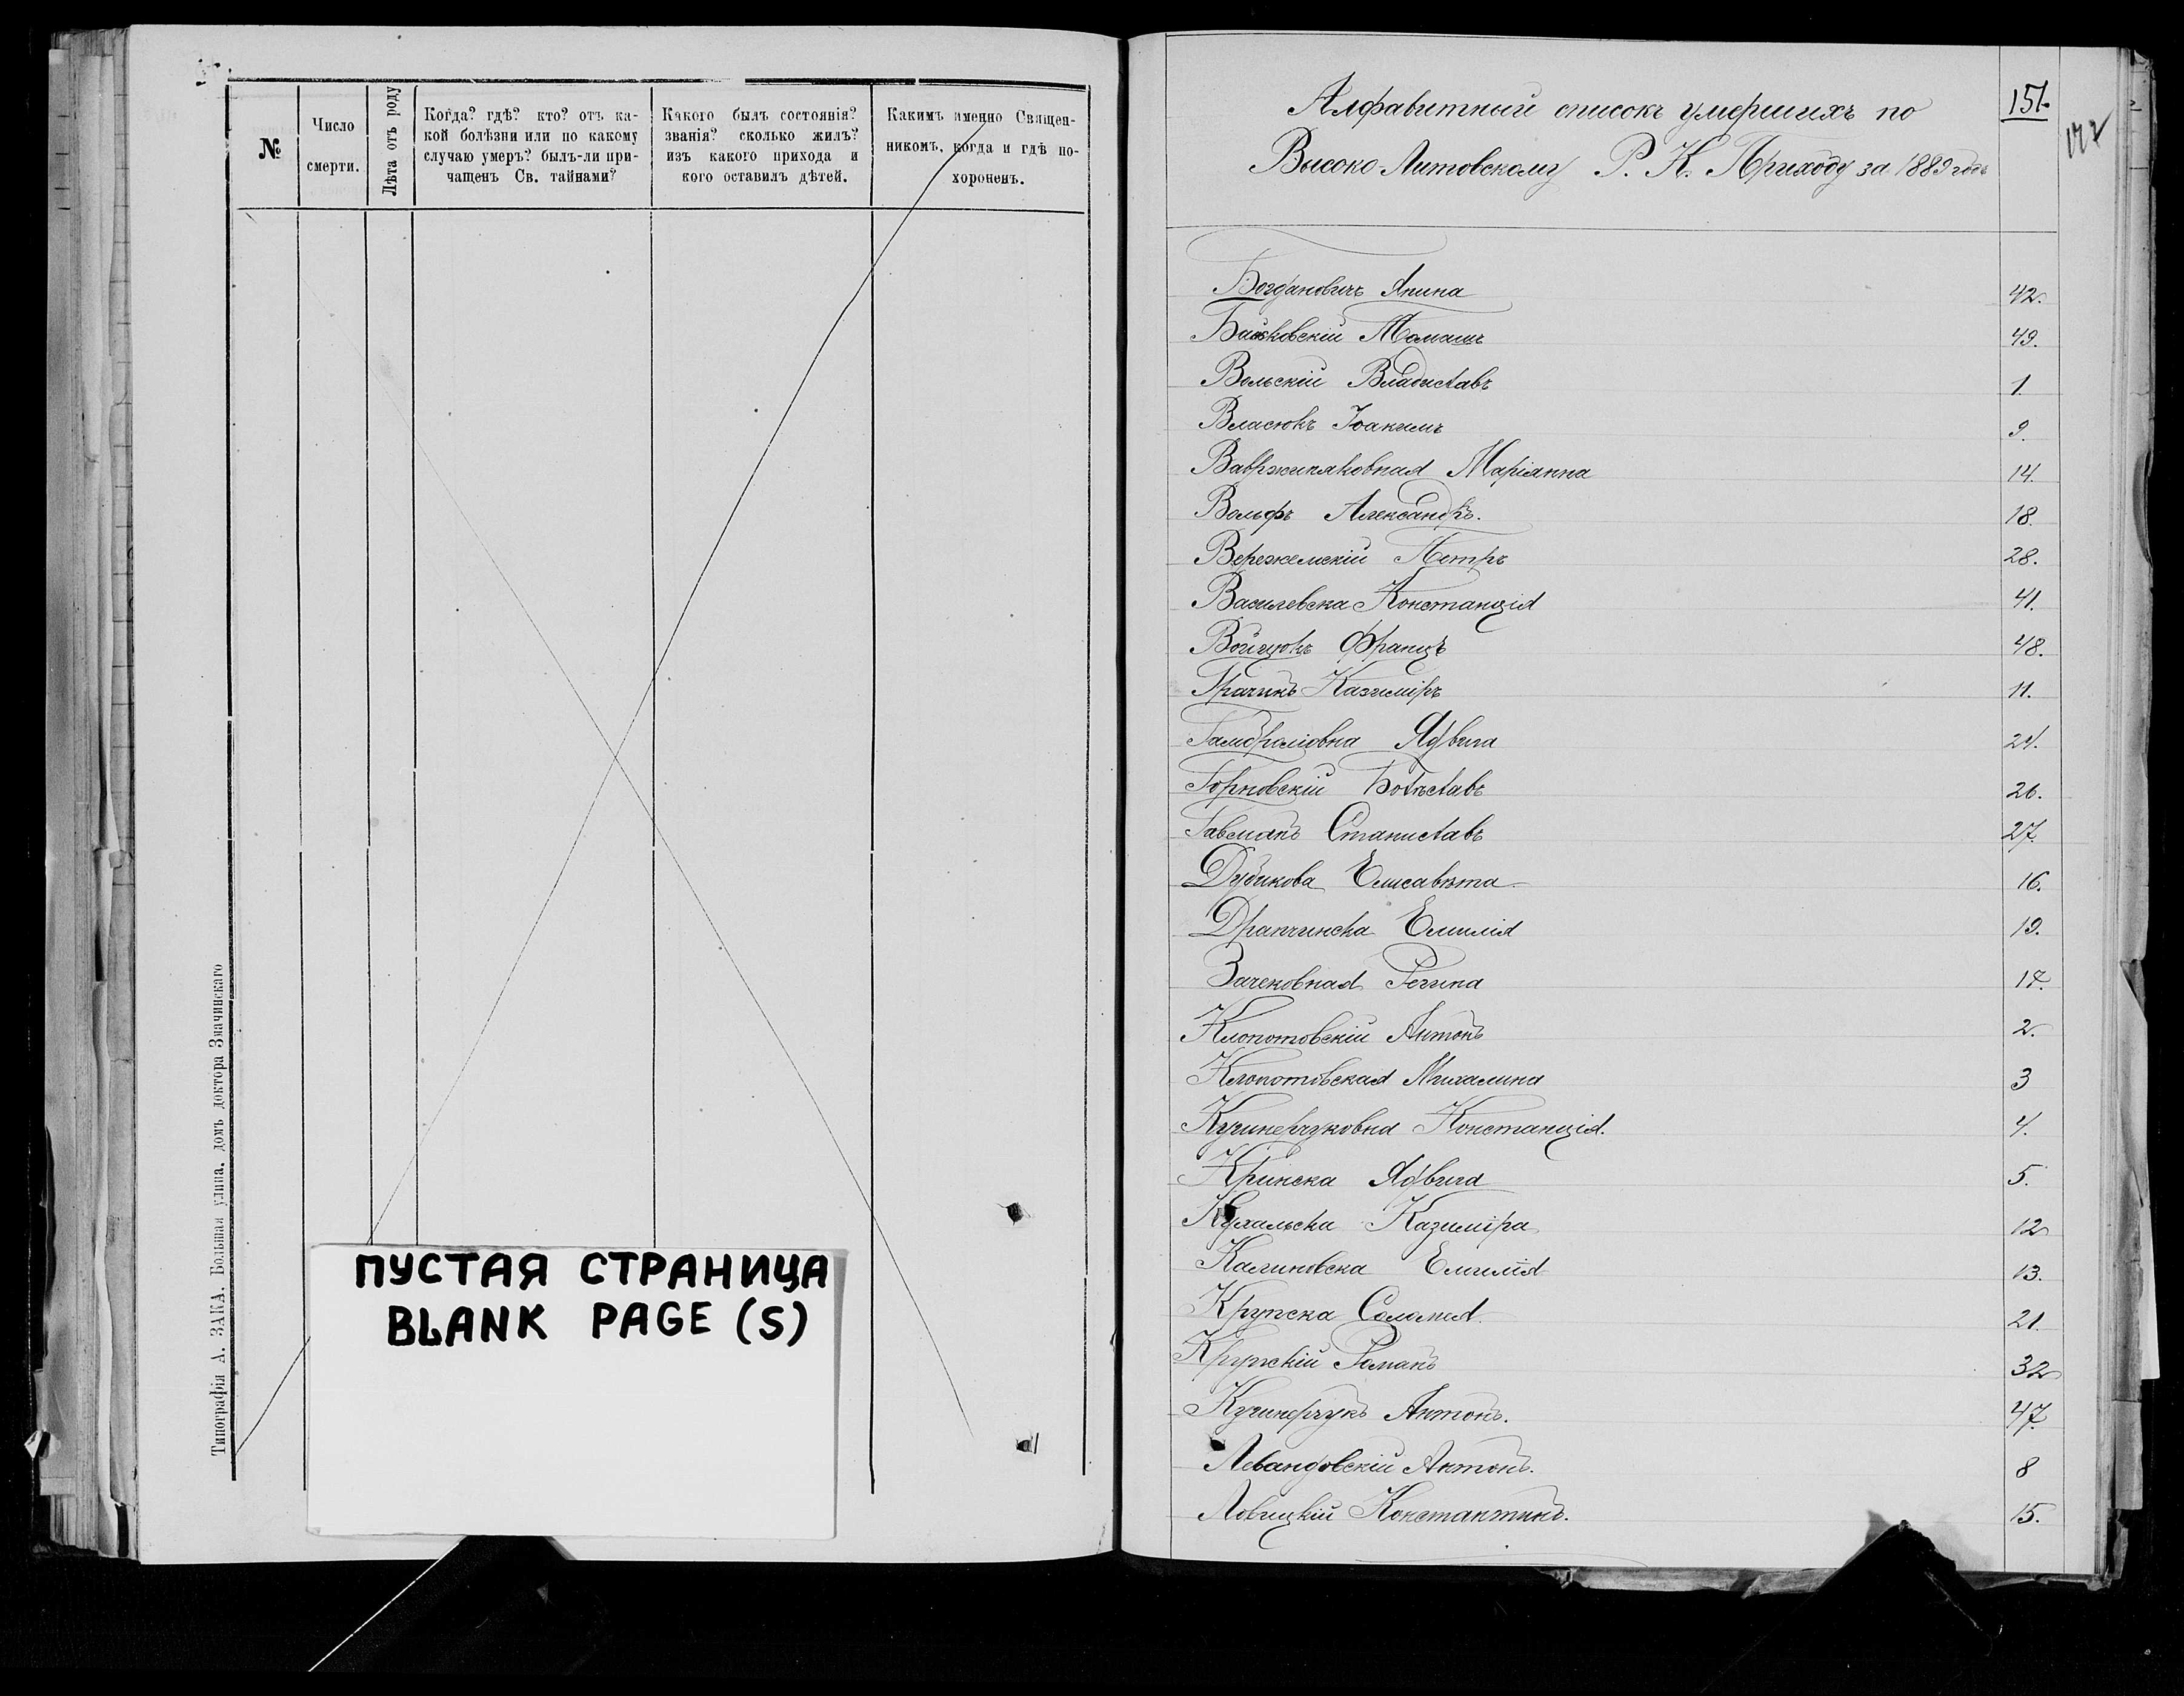 №
Число
смерти.
Лѣта отъ роду
Когда? гдѣ? кто? отъ ка-
кой болѣзни или по какому
случаю умеръ? былъ-ли при-
чащенъ Св. тайнами?
Какого былъ состоянія?
званія? сколько жилъ?
изъ какого прихода и
кого оставилъ дѣтей.
Какимъ именно Священ-
никомъ, когда и гдѣ по-
хороненъ.
Типографія А. ЗАКА. Большая улица. домъ доктора Значинскаго
ПУСТАЯ СТРАНИЦА
BLANK PAGE (S)
Алфавитный списокъ умершихъ по
Высоко-Литовскому Р. К. Приходу за 1889 годъ
151.
Богдановичъ Янина 42.
Байковскій Томашъ 49.
Вольскій Владиславъ 1.
Власюкъ Іоакимъ 9.
Вавржиняковная Маріанна 14.
Вольфъ Александръ. 18.
Вережемскій Петръ 28.
Василевска Констанція 41.
Войцюкъ Францъ 48.
Грачикъ Казиміръ 11.
Ядвига 24.
Горновскій Болеславъ 26.
Гавсманъ Станиславъ 27.
Дудикова Елисавѣта 16.
Драпчинска Емилія 19.
Заченовная Регина 17.
Клопотовскій Антонъ 2.
Клопотовская Михалина 3
Кушнерчуковна Констанція. 4.
Кринска Ядвига 5.
Кухальска Казиміра 12
Калиновска Емилія 13.
Крупска Саломея. 21.
Крупскій Романъ 32
Кушнерчукъ Антонъ. 47.
Левандовскій Антонъ. 8
Ловицкій Константинъ. 15.